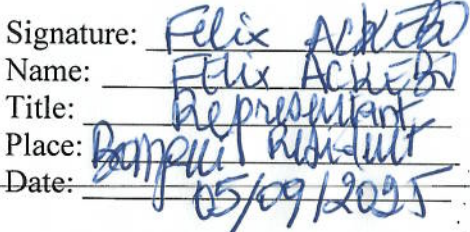 Signature: Felix ACKEBO
Name: FELix ACKEBO
Title: Representant
Place: Resident
Date: 05/09/2025